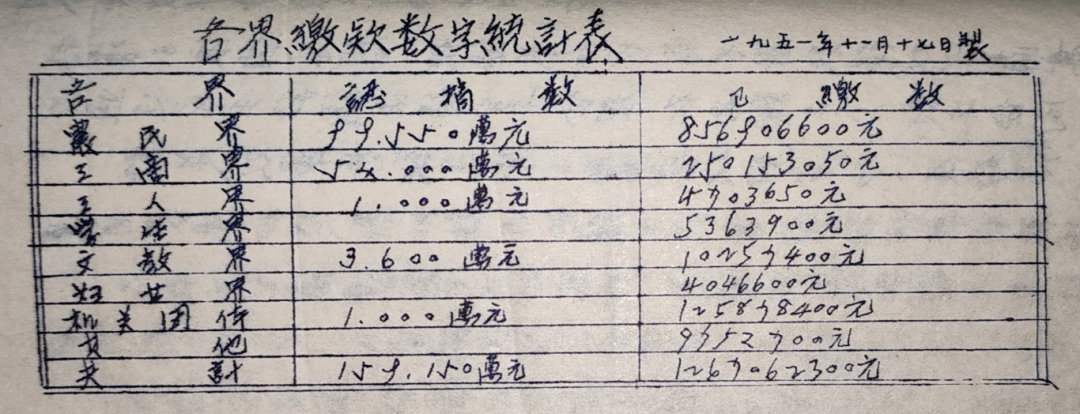 各界繳款数字統計表 一九五一年十一月十七日製
各界 認捐数 已繳数
農民界 99.550萬元 856906600元
工商界 54.000萬元 250153050元
工人界 1.000萬元 4703650元
學生界 5363900元
文教界 3.600萬元 10257400元
妇女界 4046600元
机关团体 1.000萬元 125878400元
其他 9752700元
共計 159.150萬元 1267062300元